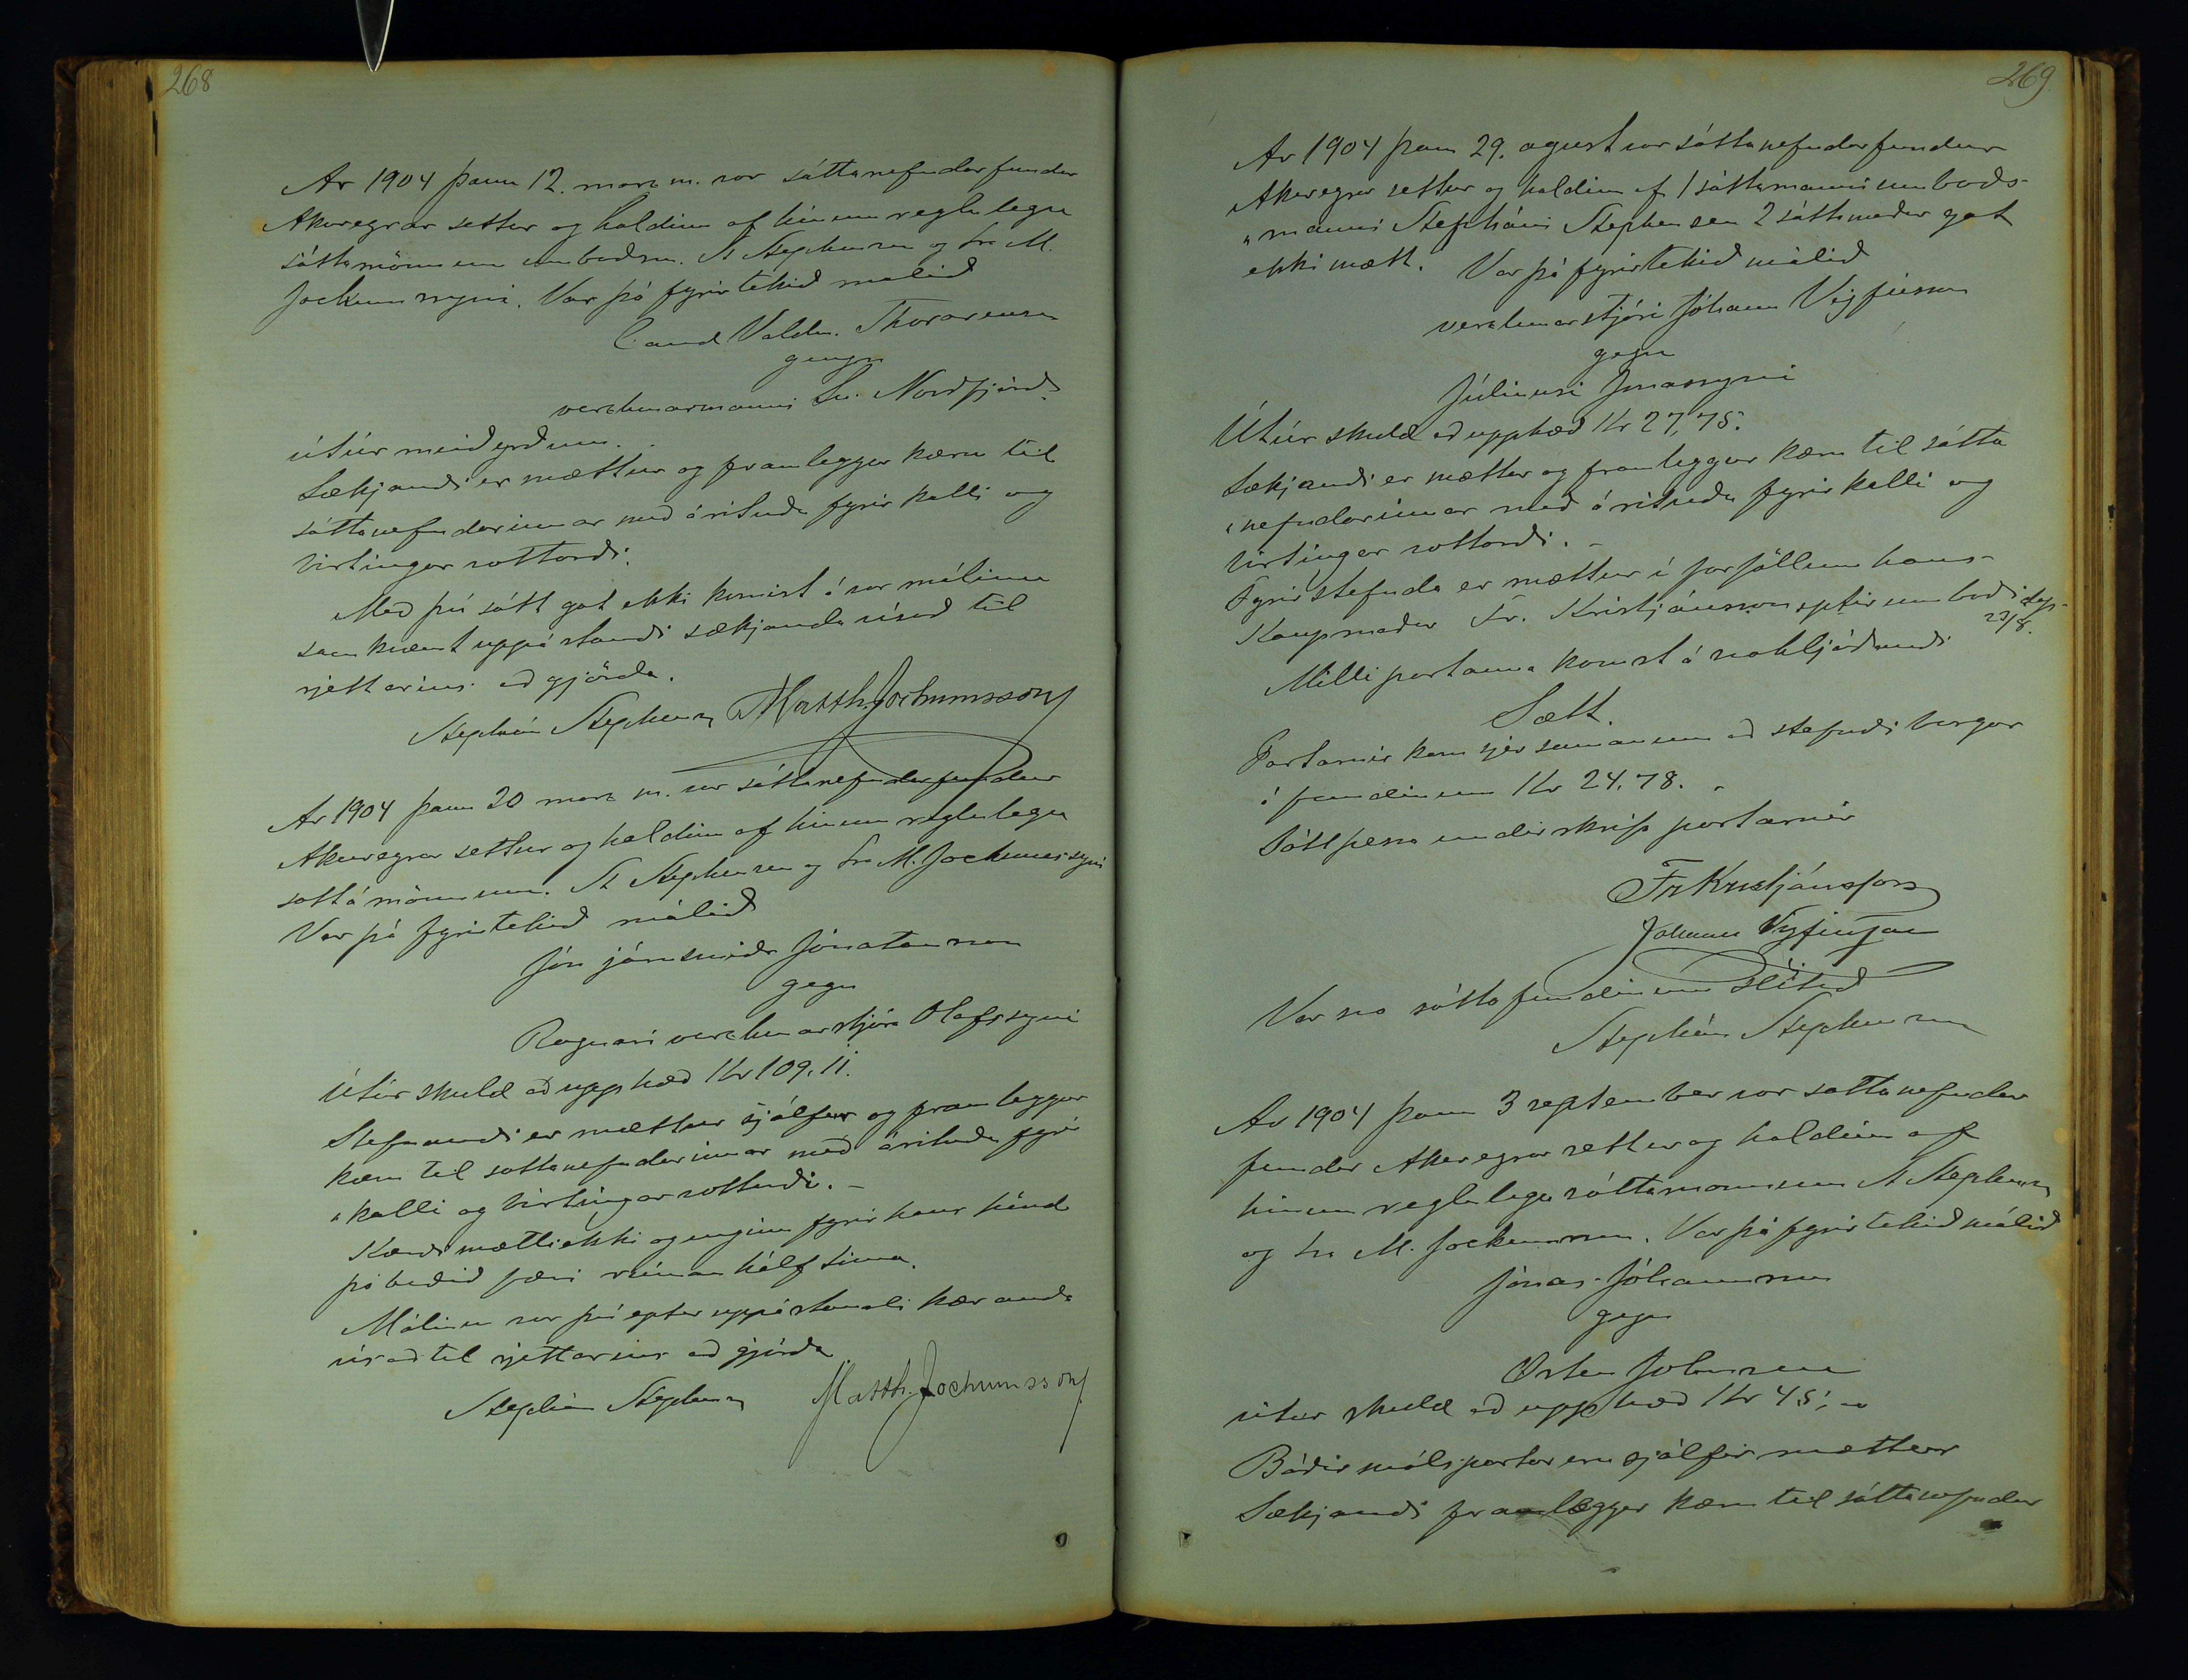 268
Ar 1904 þann 12. marz m. var sáttanefndarfundur
Akureyrar settur og haldinn af hinum reglulegu
sáttamönnum umboðsm. St Stephensen og Sra M.
Jochumssyni. Var þá fyrirtekið málið
Cand Valdm. Thorarensen
gegn
verzlunarmanni Nordfjörð
útúr meiðyrðum.
Sækjandi er mættur og framleggur kæru til
sáttanefndarinnar með árituðu fyrirkalli og
birtingarvottorði.
Með því sátt gat ekki komist á var málinu
samkvæmt uppástandi sækjanda vísað til
rjettarins aðgjörða.
Stephán Stephensen Matth. Jochumsson
Ar 1904 þann 20 marz m. var sáttanefndarfundur
Akureyrar settur og haldinn af hinum reglulegu
sáttamönnum. St Stephensen og Sra M. Jochumssyni
Var þá fyrirtekið málið
Jón járnsmiðr Jónatansson
gegn
Ragnari verzlunarstjóra Olafssyni
Útúr skuld að upphæð Kr 109,11.
Stefnandi er mættur sjálfur og framleggur
kæru til sáttanefndarinnar með árituðu fyrir
"kalli og birtingarvottorði. -
Kærði mætti ekki og enginn fyrir hans hönd
þó beðið væri rúman hálftíma.
Málinu var því eptir uppástandi kæranda
vísað til rjettarins aðgjörða
Stephán Stephensen Matth. Jochumsson
269
Ar 1904 þann 29. agust var sáttanefndarfundur
Akureyrar settur og haldinn af 1 sáttamanni umboðs-
"manni Stepháni Stephensen 2 sáttamaður gat
ekki mætt. Var þá fyrirtekið málið
verzlunarstjóri Jóhann Vigfússon
gegn
Júlíusi Jónassyni
Útúr skuld að upphæð Kr 27,75.
Sækjandi er mættur og framleggur kæru til sátta
"nefndarinnar með árituðu fyrirkalli og
birtingarvottorði. -
Fyrir stefnda er mættur í forföllum hans -
Kaupmaður Fr. Kristjánsson eptir umboði dags.
29/8.
Milli partanna komst á svohljóðandi
Sætt.
Partarnir kom sjer saman um að stefndi borgar
á fundinum Kr 24,78.
Sátt þessa undirskrifa partarnir
Fr Kristjánsson
Johann Vigfússon
Var svo sáttafundinum slitið
Stephán Stephensen
Ar 1904 þann 3 september var sáttanefndar
fundur Akureyrar settur og haldinn af
hinum reglulegu sáttamönnum St Stephensen
og Sra M. Jochumssyni. Var þá fyrirtekið málið
Jónas Jóhannsson
gegn
útúr skuld að upphæð Kr 45,
Báðir málspartar eru sjálfir mættir
Sækjandi framleggur kæru til sáttanefndar